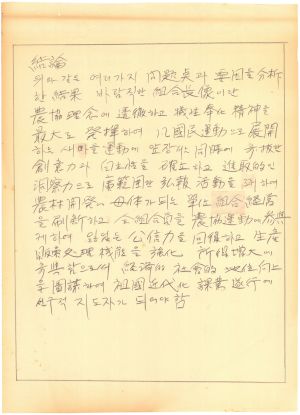 結論
위와 같은 여러가지 問題点과 要因을 分析
한 結果 바람직한 組合長像이란
農協理念에 透徹하고 犧牲奉仕 精神을
最大로 發揮하여 汎國民運動으로 展開
하는 새마을運動에 앞장서는 同時에
創意力과 自主性을 確立하고 進取的인
洞察力으로 廣範囲한 弘報 活動을 하여
農村開発의 母体가 되는 單位 組合 經營
을 刷新하고 全組合員을 農協運動에 参與
케하여 잃었는 公信力을 回復하고 生産
販賣 處理 機能을 強化 所得増大에
寄與함으로써 經濟的 社會的 地位向上
을 圖謀하여 祖國近代化 課業 遂行에
지도자가 되어야 함